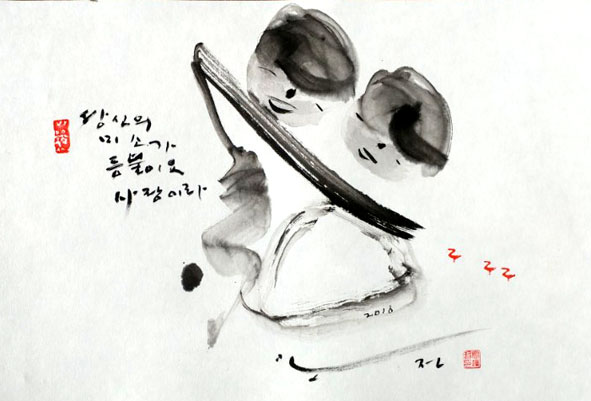 당신의
미소가
등불이오
사랑이라
2016